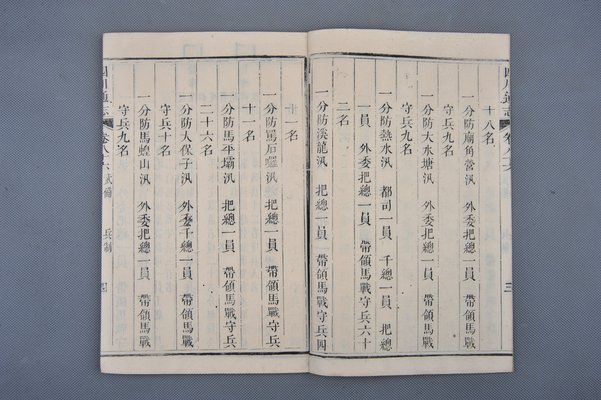 四川通志
卷八十六
三
十八名
一分防廟角營汛 外委把總一員 帶領馬戰
守兵九名
一分防大水塘汛 外委把總一員 帶領馬戰
守兵九名
一分防熱水汛 都司一員 千總一員 把總
一員 外委把總一員 帶領馬戰守兵六十
二名
一分防溪龍汛 把總一員 帶領馬戰守兵四
十一名
一分防馬石 汛 把總一員 帶領馬戰守兵
十一名
一分防馬平壩汛 把總一員 帶領馬戰守兵
二十六名
一分防人保子汛 外委千總一員 帶領馬戰
守兵十名
一分防馬蝗山汛 外委把總一員 帶領馬戰
守兵九名
四川通志
卷八十六 武備 兵制
四